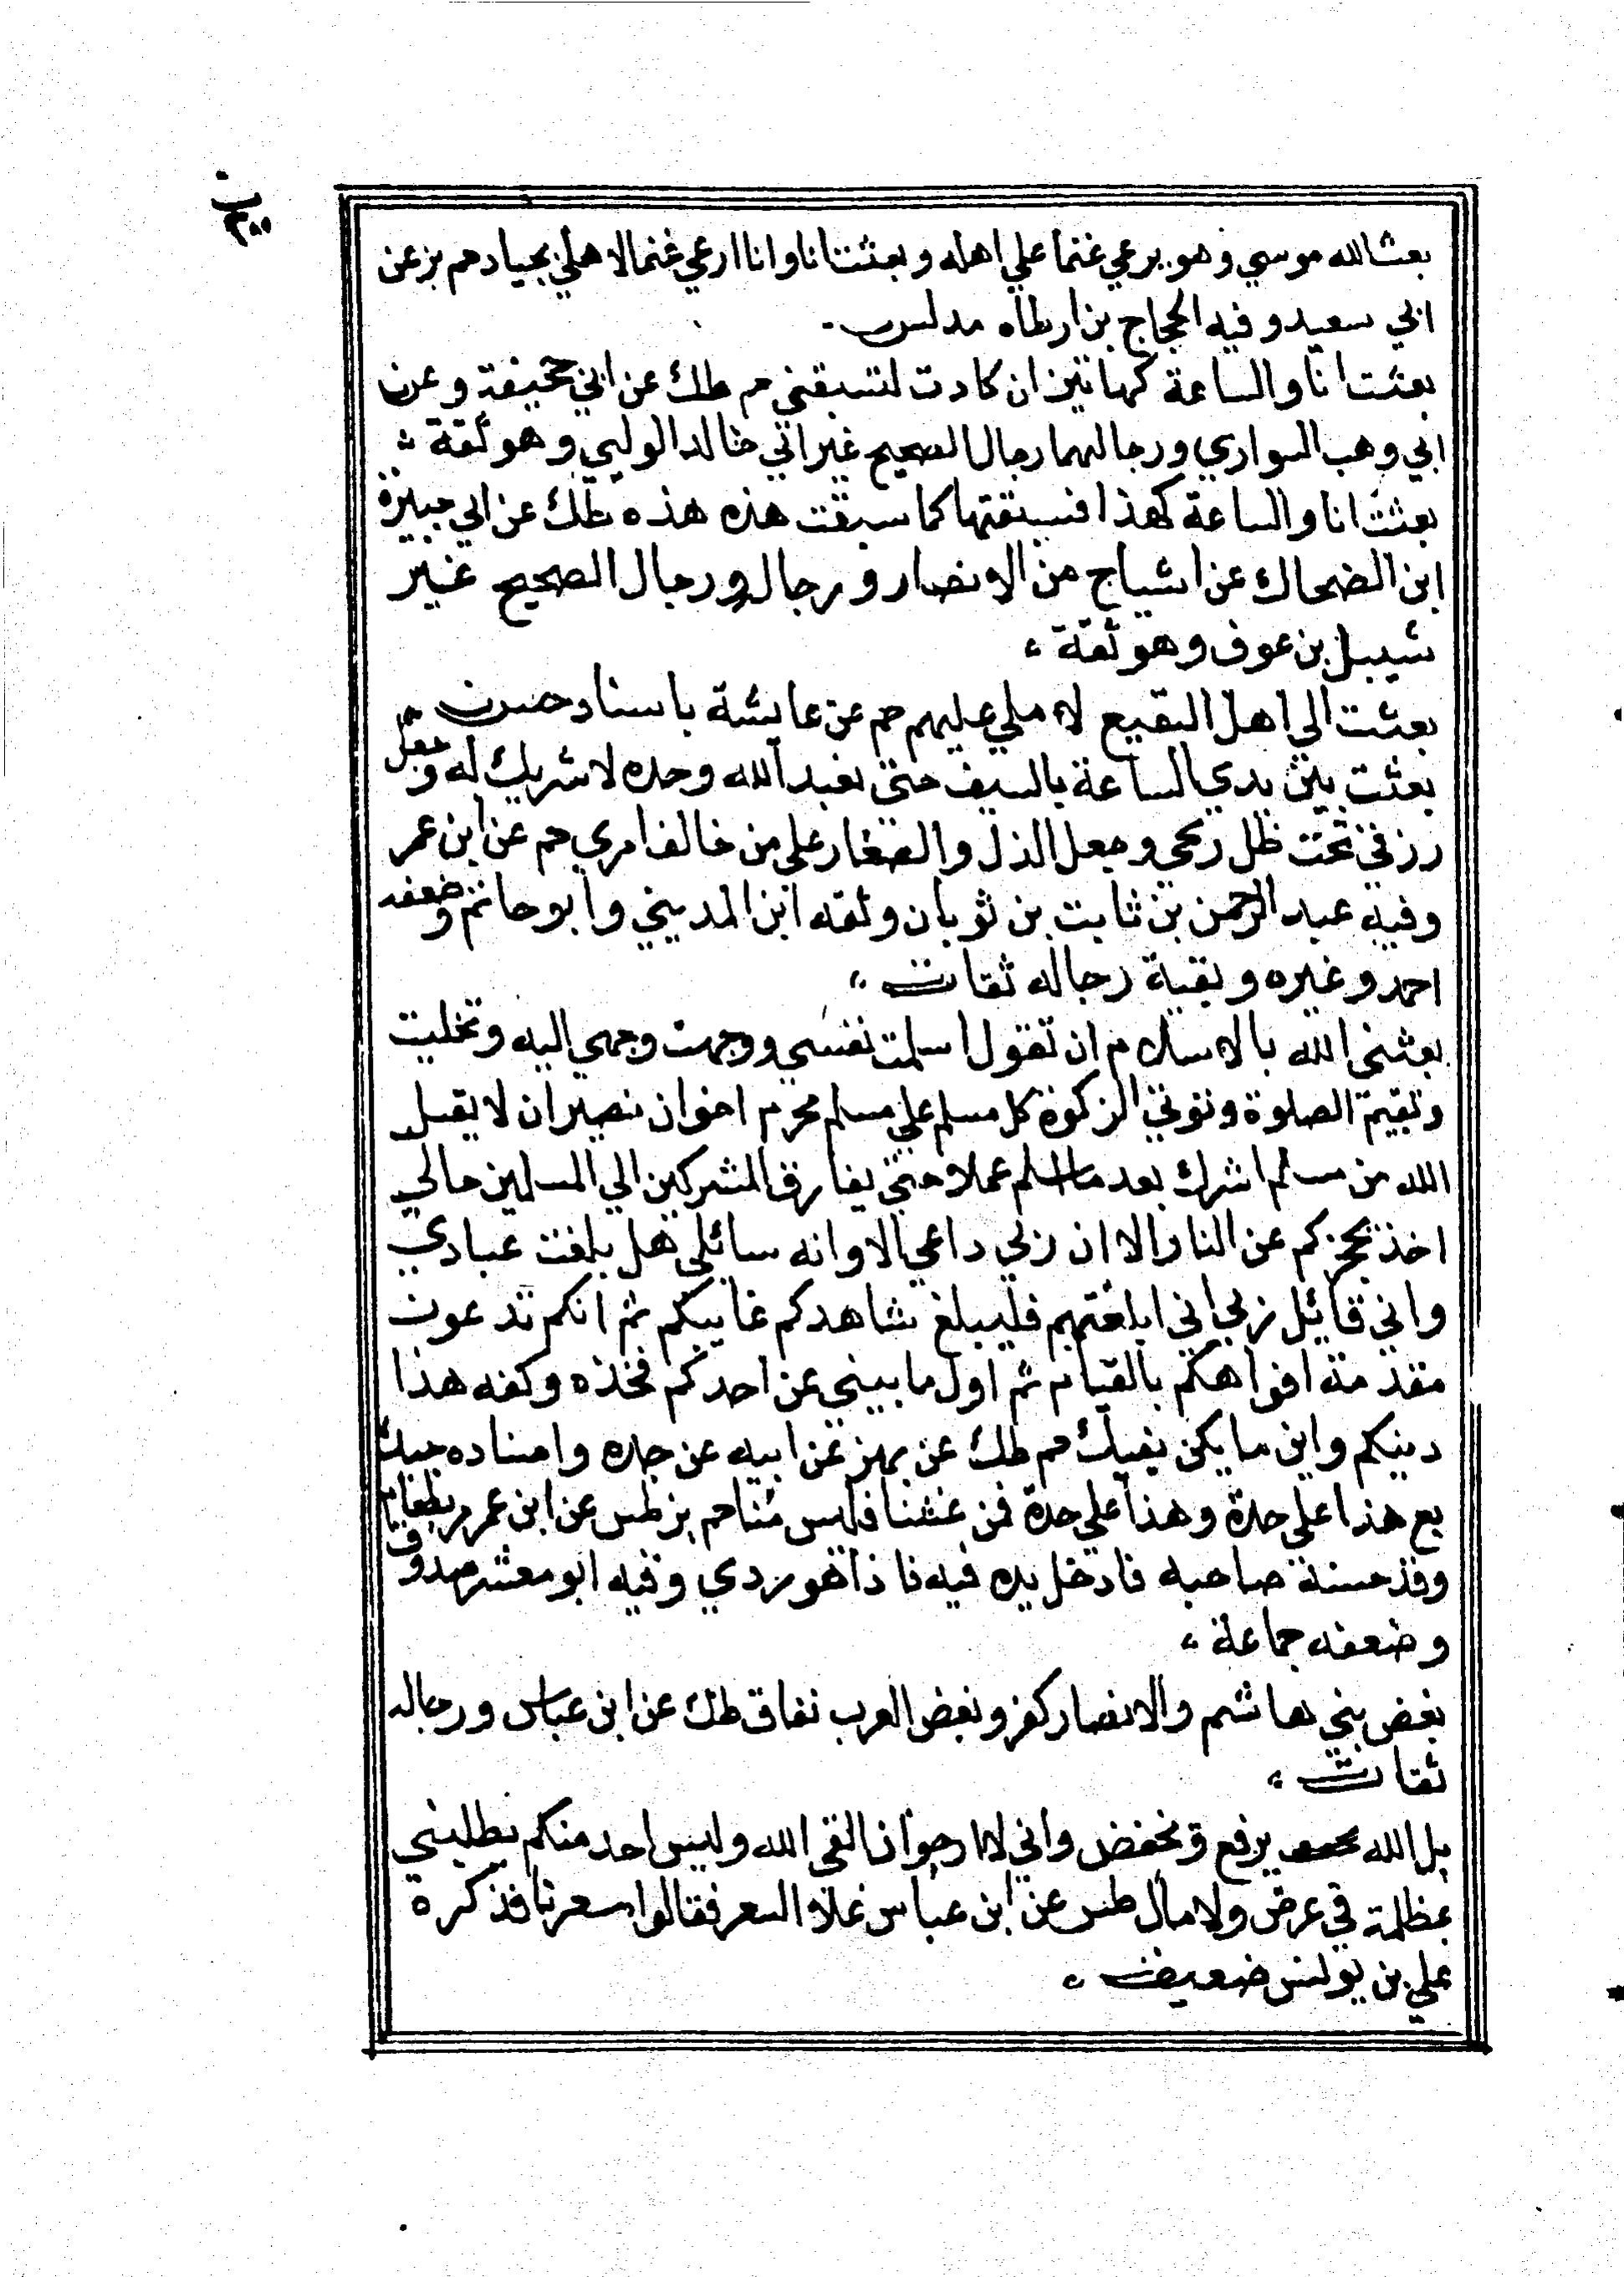 ب
٣٨٥
بعث الله موسي وهو يرعي غنما علي اهله وبعثت انا وانا ارعي غنما لاهلي بجياد حم بز عن
ابي سعيد وفيه الحجاج بن ارطاه مدلس
بعثت انا والساعة كهاتين ان كادت لتسبقني حم طك عن ابي جحيفة وعن
ابي وهب السواري ورجالهما رجال الصحيح غير ابي خالد الولبي وهو ثقة
بعثت انا والساعة كهذا فسبقتها كما سبقت هذه هذه طك عن ابي جبيرة
ابن الضحاك عن اشياج من الانصار ورجاله رجال الصحيح غير
شبيل بن عوف وهو ثقة
بعثت الي اهل البقيع لاصلي عليهم حم عن عايشة باسناد حسن
بعثت بين يدي الساعة بالسيف حتي يعبد الله وحده لا شريك له وجعل
رزقي تحت ظل رمحي وجعل الذل والصغار علي من خالف امري حم عن ابن عمر
وفيه عبد الرحمن بن ثابت بن ثوبان وثقه ابن المديني وابو حاتم وضعفه
احمد وغيره وبقية رجاله ثقات
بعثني الله بالاسلام ان تقول اسلمت نفسي ووجهت وجهي اليه وتخليت
وتقيم الصلوة وتوتي الزكوة كل مسلم علي مسلم محرم اخوان نصيران لا يقبل
الله من مسلم اشرك بعد ما اسلم عملا حتي يفارق المشركين الي المسلمين مالي
اخذ بحجزكم عن النار الا ان ربي داعي الا وانه سائلي هل بلغت عبادي
واني قايل ربي اني ابلغتهم فليبلغ شاهدكم غايبكم ثم انكم تدعون
مقدمة افواهكم بالفدام ثم اول ما يبيني عن احدكم فخذه وكفه هذا
دينكم واين ما يكن يفيك حم طك عن بهز عن ابيه عن جده واسناده جيد
بع هذا علي حدة وهذا علي حدة فمن غشنا فليس منا حم بز طس عن ابن عمر مر بطعام
وقد حسنه صاحبه فادخل يده فيه فاذا هو ردي وفيه ابو معشر صدوق
وضعفه جماعة
بغض بني هاشم والانصار كفر وبغض العرب نفاق طك عن ابن عباس ورجاله
ثقات
بل الله يرفع ويخفض واني لارجو ان القي الله وليس احد منكم يطلبني
بمظلمة في عرض ولا مال طس عن ابن عباس غلا السعر فقالوا سعر لنا فذكره
علي بن يونس ضعيف